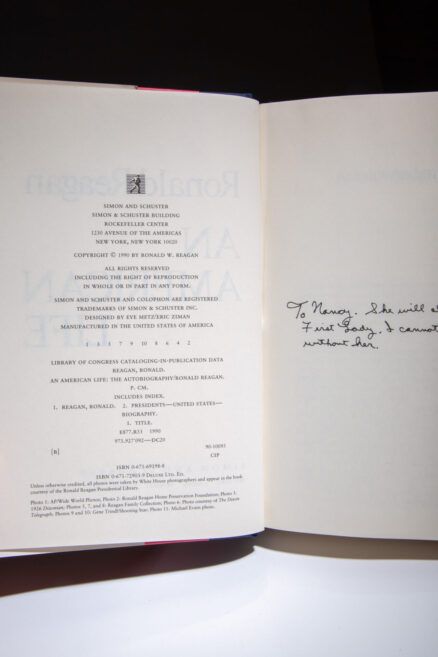 SIMON AND SCHUSTER
SIMON & SCHUSTER BUILDING
ROCKEFELLER CENTER
1230 AVENUE OF THE AMERICAS
NEW YORK, NEW YORK 10020
COPYRIGHT © 1990 BY RONALD W. REAGAN
ALL RIGHTS RESERVED
INCLUDING THE RIGHT OF REPRODUCTION
IN WHOLE OR IN PART IN ANY FORM.
SIMON AND SCHUSTER AND COLOPHON ARE REGISTERED
TRADEMARKS OF SIMON & SCHUSTER INC.
DESIGNED BY EVE METZ/ERIC ZIMAN
MANUFACTURED IN THE UNITED STATES OF AMERICA
3 5 7 9 10 8 6 4 2
LIBRARY OF CONGRESS CATALOGING-IN-PUBLICATION DATA
REAGAN, RONALD.
AN AMERICAN LIFE: THE AUTOBIOGRAPHY/RONALD REAGAN.
P. CM.
INCLUDES INDEX.
1. REAGAN, RONALD. 2. PRESIDENTS—UNITED STATES—
BIOGRAPHY.
I. TITLE.
E877.R33 1990
973.927'092—DC20
[B] 90-10091
CIP
ISBN 0-671-69198-8
ISBN 0-671-72905-9 DELUXE LTD. ED.
Unless otherwise credited, all photos were taken by White House photographers and appear in the book
courtesy of the Ronald Reagan Presidential Library.
Photo 1: AP/Wide World Photos; Photo 2: Ronald Reagan Home Preservation Foundation; Photo 3:
1926 Dixonian; Photos 5, 7, and 8: Reagan Family Collection; Photo 6: Photo courtesy of The Dixon
Telegraph; Photos 9 and 10: Gene Trindl/Shooting Star; Photo 11: Michael Evans photo.
Ronald Reagan
AN
LIFE
To Nancy. She will
First Lady. I cannot
without her.